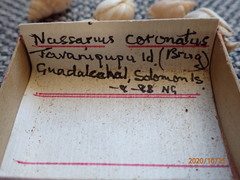 Nassarius coronatus
Tavanipupu Id. (Brug)
Guadalcanal, Solomon Is
-9-88 NG
2020/10/25